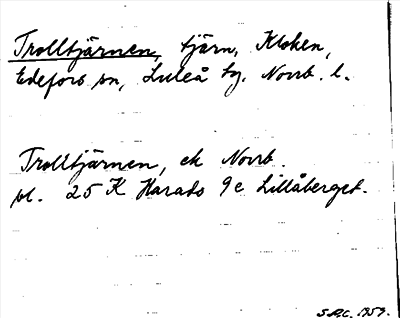 Trolltjärnen, tjärn, Kloken,
Edefors sn, Luleå tg. Norrb. l.
Trolltjärnen, ek Norrb.
pl. 25 K Harads 9e Lillåberget.
1959.